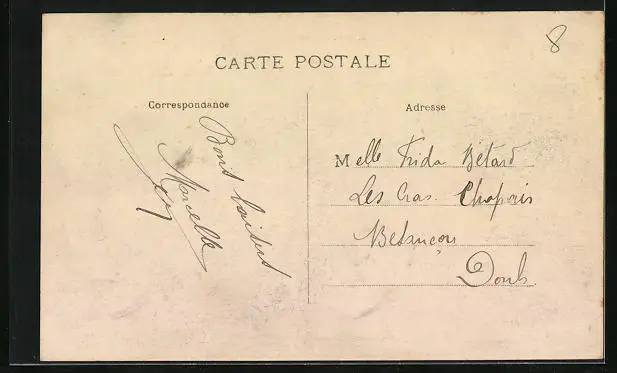 8
CARTE POSTALE
Correspondance
Adresse
Bons baisers
Marcelle
Melle Frida Bétard
Les Cras. Chaprais
Besançon
Doubs